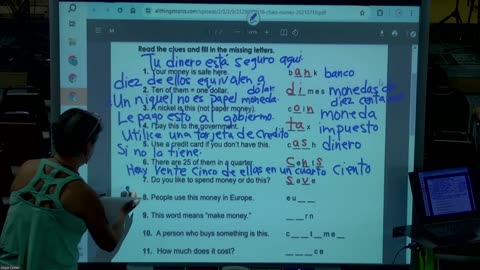 Read the clues and fill in the missing letters.
Tu dinero está seguro aqui.
1. Your money is safe here. b a n k banco
diez de ellos equivalen a
2. Ten of them = one dollar. dolar d i m e s monedas de
diez centavos
Un niquel no es papel moneda.
3. A nickel is this (not paper money). c o i n moneda
Le pago esto al gobierno.
4. I pay this to the government. t a x impuesto
Utilice una tarjeta de credito
5. Use a credit card if you don't have this. c a s h dinero
Si no la tiene.
6. There are 25 of them in a quarter. C e n t s
Hay vente cinco de ellas en un cuarto Ciento
7. Do you like to spend money or do this? S a v e
8. People use this money in Europe. e u _ _
9. This word means "make money." _ _ r n
10. A person who buys something is this. c _ _ t _ m e _
11. How much does it cost? _ _ _ c e